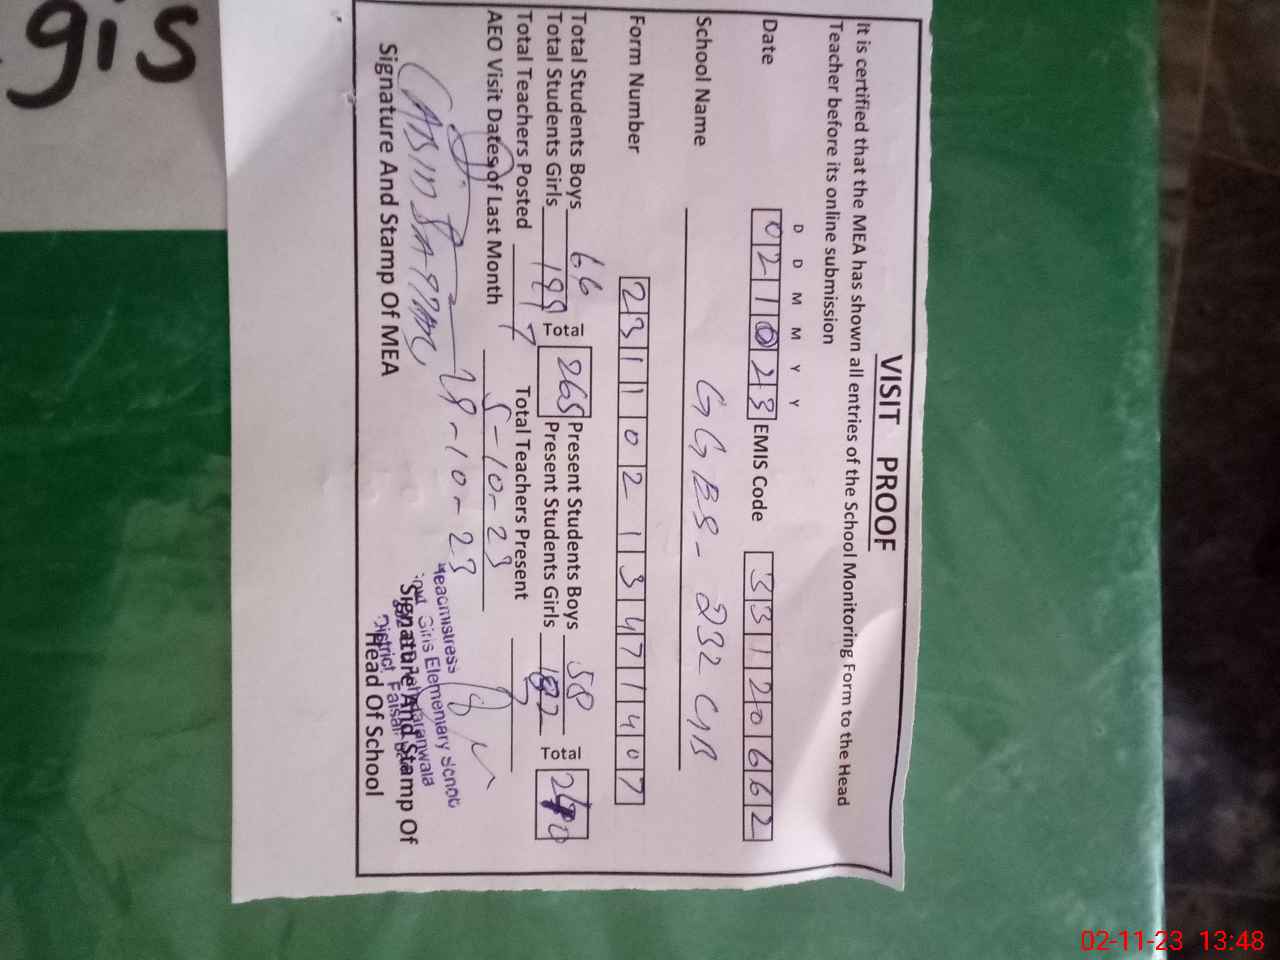 gis
VISIT PROOF
It is certified that the MEA has shown all entries of the School Monitoring Form to the Head
Teacher before its online submission
D D M M Y Y
Date 021023 EMIS Code 33120662
School Name GGES - 232 GB
Form Number 23110213471407
Total Students Boys 66 Total 265 Present Students Boys 58 Total
Total Students Girls 199 Present Students Girls 182
Total Teachers Posted 7 Total Teachers Present
AEO Visit Dates of Last Month 5-10-23
28-10-23
Signature And Stamp Of MEA
Headmistress
Govt Girls Elementary School
District Faisalabad
Signature And Stamp Of
Head Of School
02-11-23 13:48